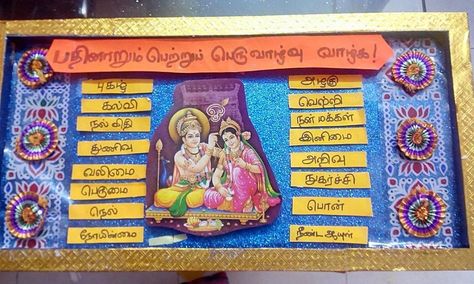 பதினாறும் பெற்றுப் பெருவாழ்வு வாழ்க!
புகழ்
கல்வி
நல் விதி
துணிவு
வலிமை
பெருமை
நெல்
நோயின்மை
அழகு
வெற்றி
நன் மக்கள்
இளமை
அறிவு
நுகர்ச்சி
பொன்
நீண்ட ஆயுள்